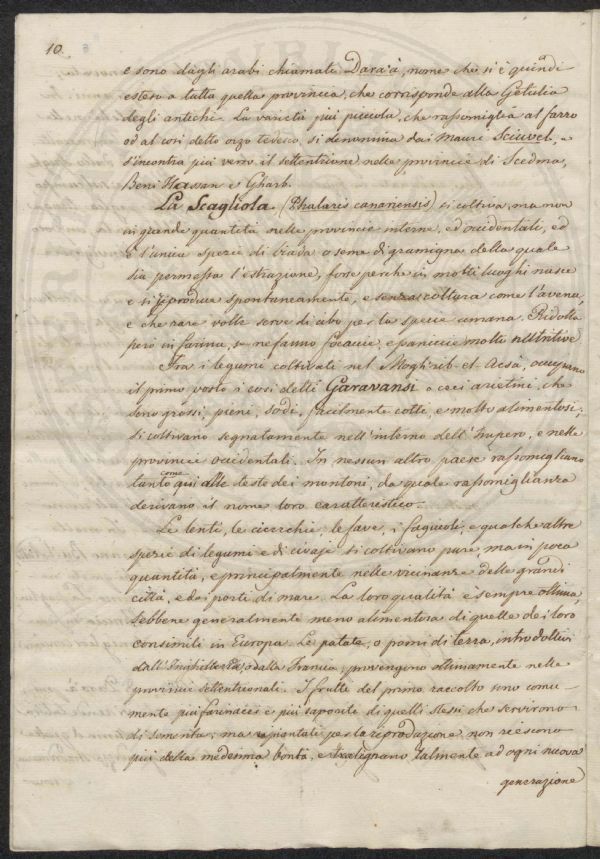 10.
e sono dagli arabi chiamati Dara'a, nome che si è quindi
esteso a tutta quella provincia, che corrisponde alla Getulia
degli antichi. La varietà più piccola, che rassomiglia al farro
od al così detto orzo tedesco, si denomina dai Mauri Sciuvel, e
s'incontra più verso il settentrione nelle provincie di Scedma,
Beni Hassan e Gharb.
La Scagliola (Phalaris canariensis) si coltiva, ma non
in grande quantità nelle provincie interne, ed occidentali, ed
è l'unica specie di biada o seme di gramigna della quale
sia permessa l'estrazione, forse perchè in molti luoghi nasce
e si riproduce spontaneamente, e senza coltura come l'avena,
e che rare volte serve di cibo per la specie umana. Ridotta
però in farina, se ne fanno focaccie, e paniccie molto nutritive
Fra i legumi coltivati nel Moghrib-el-Acsà, occupano
il primo posto i così detti Garavansi o ceci arietini, che
sono grossi, pieni, sodi, facilmente cotti, e molto alimentosi;
si coltivano segnatamente nell'interno dell'Impero, e nelle
provincie occidentali. In nessun altro paese rassomigliano
tanto come qui alle teste dei montoni, da quale rassomiglianza
derivano il nome loro caratteristico.
Le lenti, le cicerchie, le fave, i fagiuoli, e qualche altre
specie di legumi e di civaje si coltivano pure, ma in poca
quantità, e principalmente nelle vicinanze delle grandi
città, e dei porti di mare. La loro qualità è sempre ottima,
sebbene generalmente meno alimentosa di quelle dei loro
consimili in Europa. Le patate, o pomi di terra, introdottivi
dall' o dalla Francia, provengono ottimamente nelle
provincie settentrionali. I frutti del primo raccolto sono comu-
mente più farinacei e più saporiti di quelli stessi che servirono
di sementa; ma ripiantati per la riproduzione non riescono
più della medesima bontà, e tralignano talmente ad ogni nuova
generazione